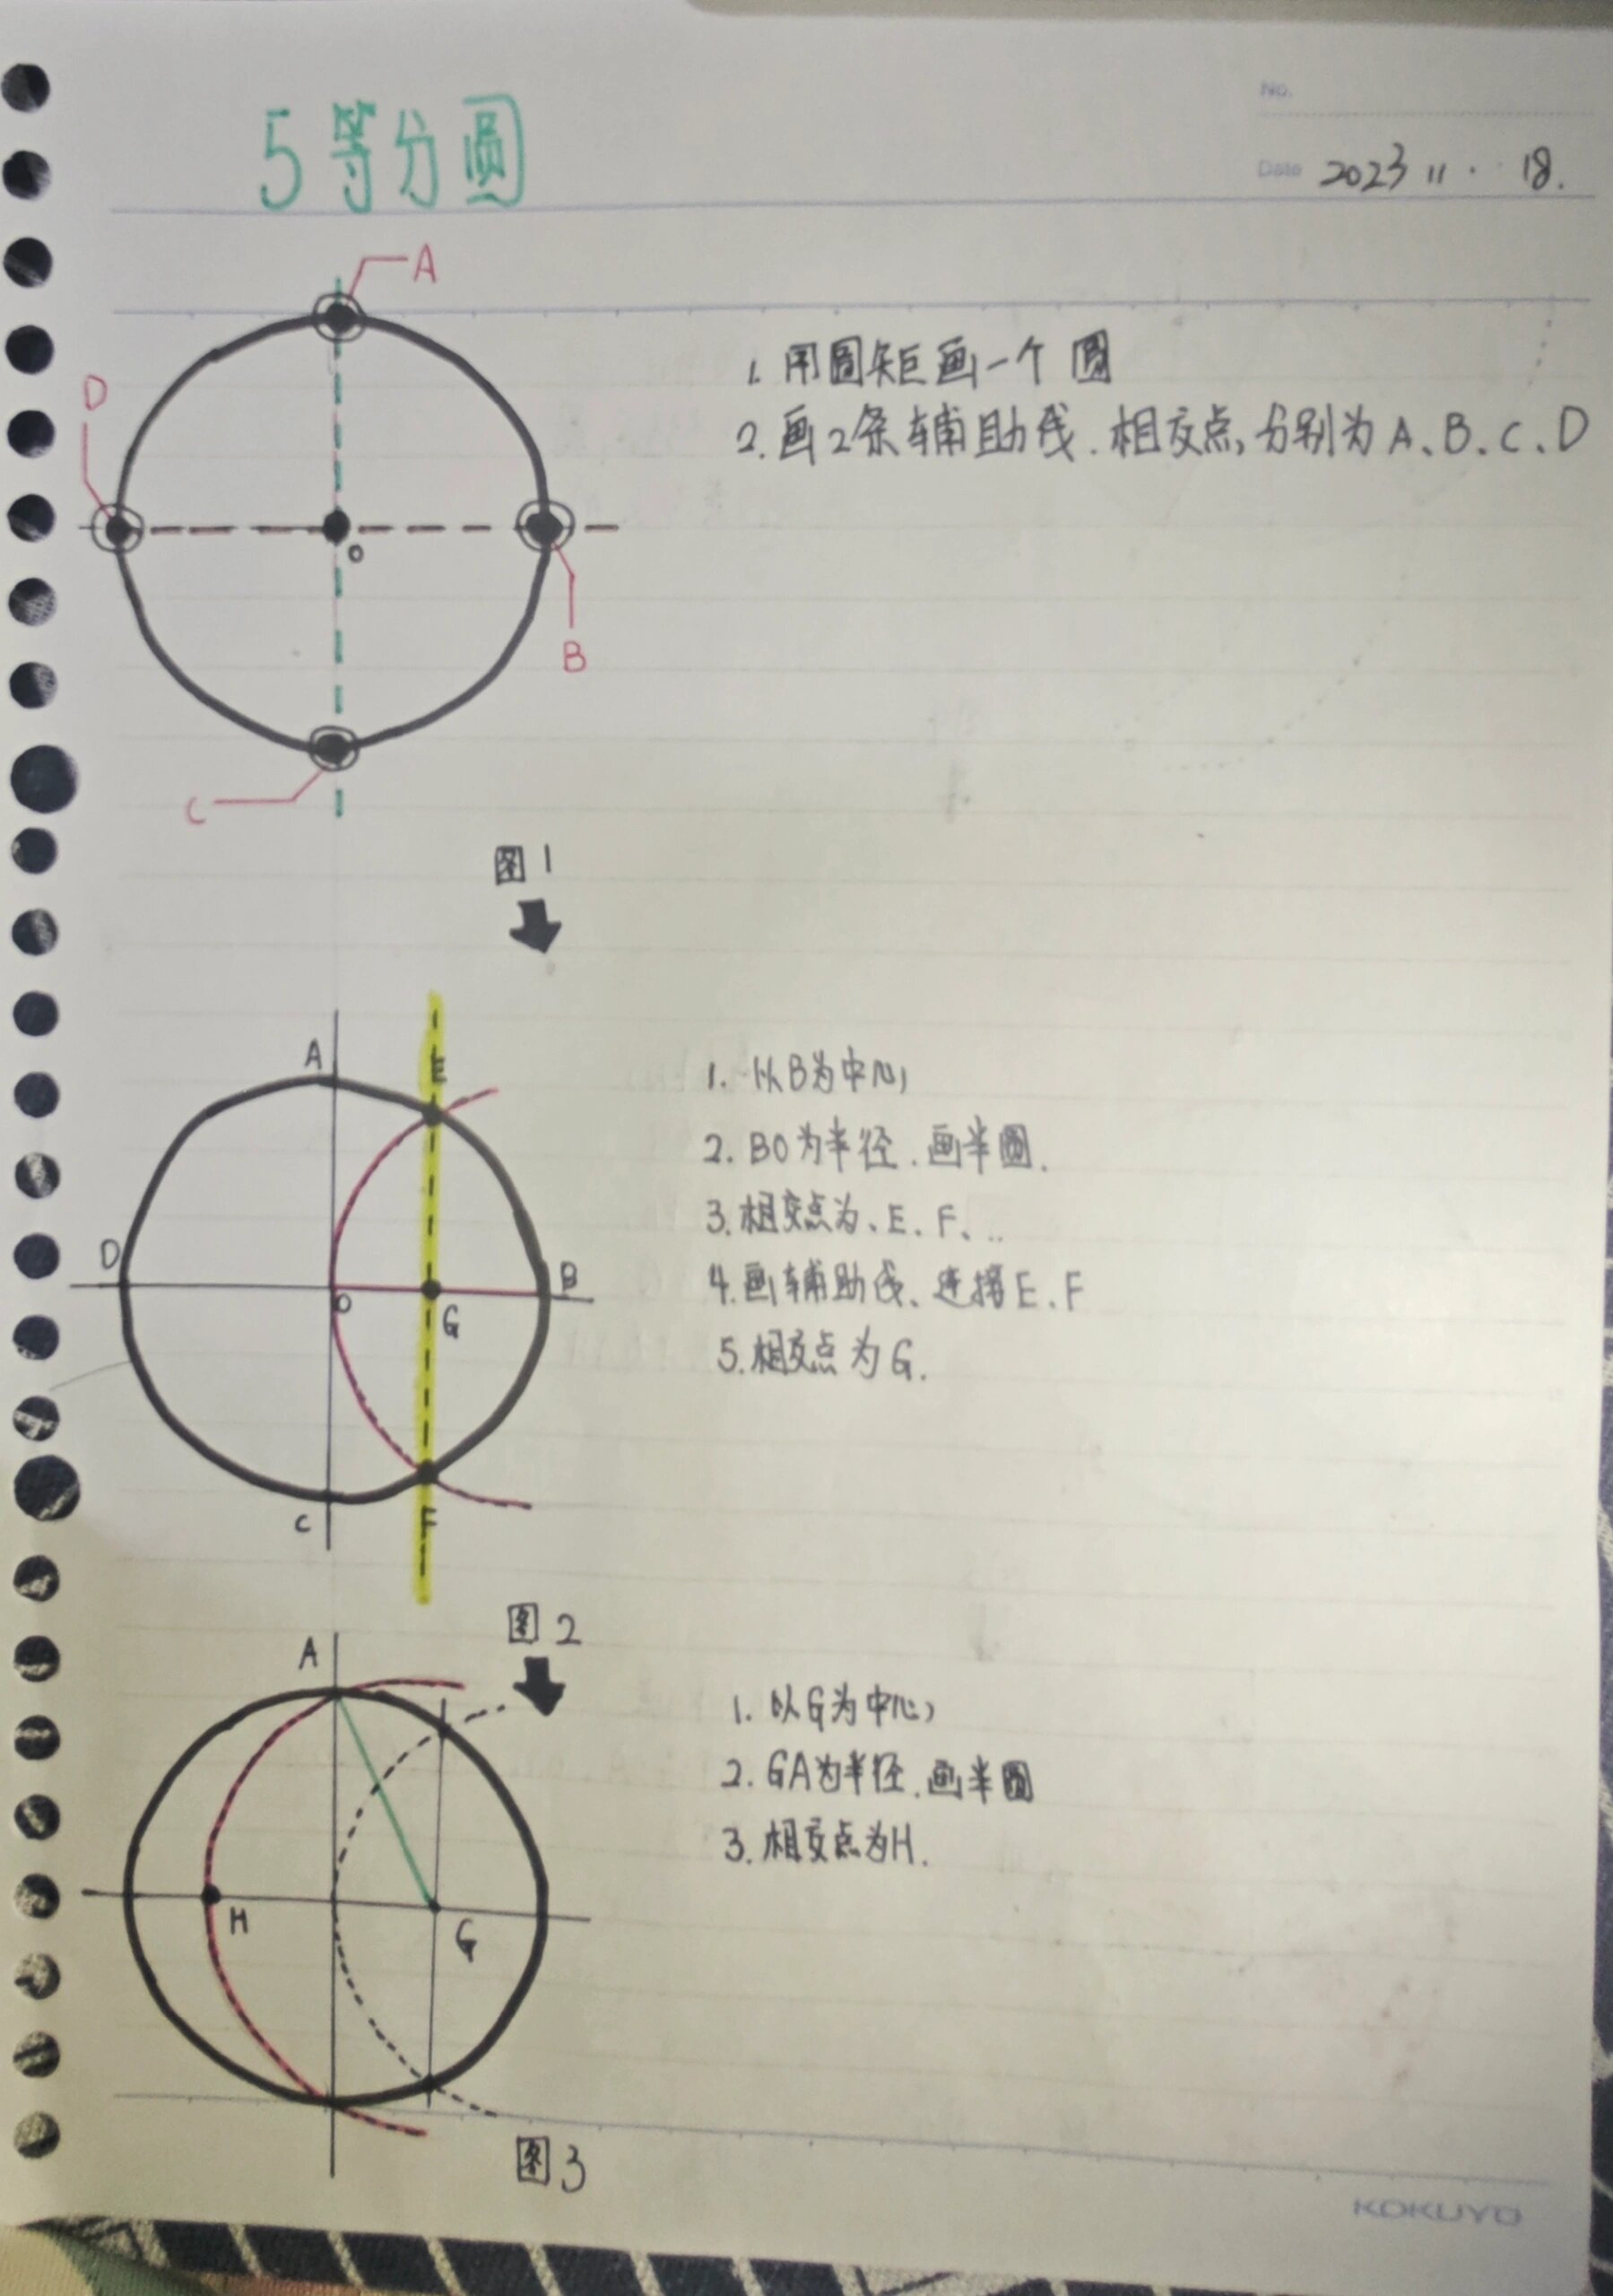 5等分圆
No.
Date 2023 11 · 18.
A
D
O
B
C
1. 用圆矩画一个圆
2. 画2条辅助线.相交点,分别为A、B、C、D
图1
A
E
D
O
G
B
C
F
1. 以B为中心
2. BO为半径.画半圆.
3. 相交点为、E、F、..
4. 画辅助线、连接E、F
5. 相交点为G.
图2
A
H
G
1. 以G为中心
2. GA为半径.画半圆
3. 相交点为H.
图3
KOKUYO